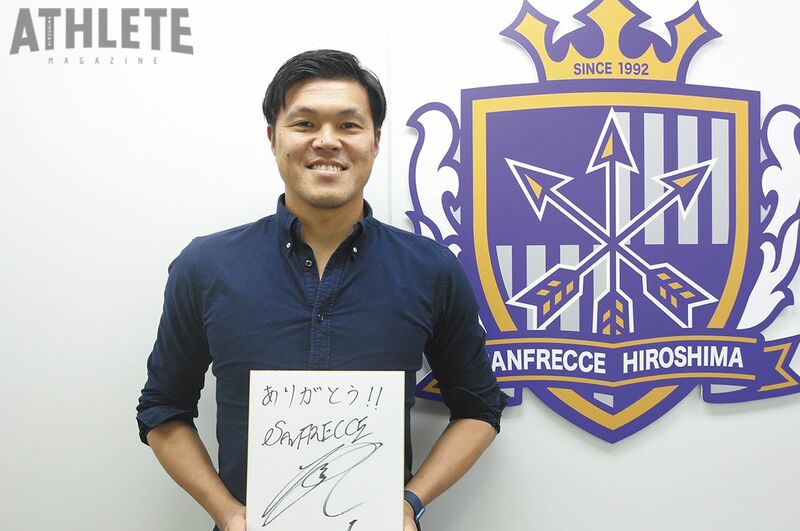 ATHLETE
HIROSHIMA
MAGAZINE
SINCE 1992
ANFRECCE HIROSHIMA
ありがとう!!
SANFRECCE
1